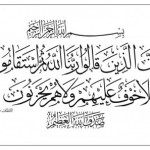 بسم الله الرحمن الرحيم
إن الذين قالوا ربنا الله ثم استقاموا
فلا خوف عليهم ولا هم يحزنون
صدق الله العظيم